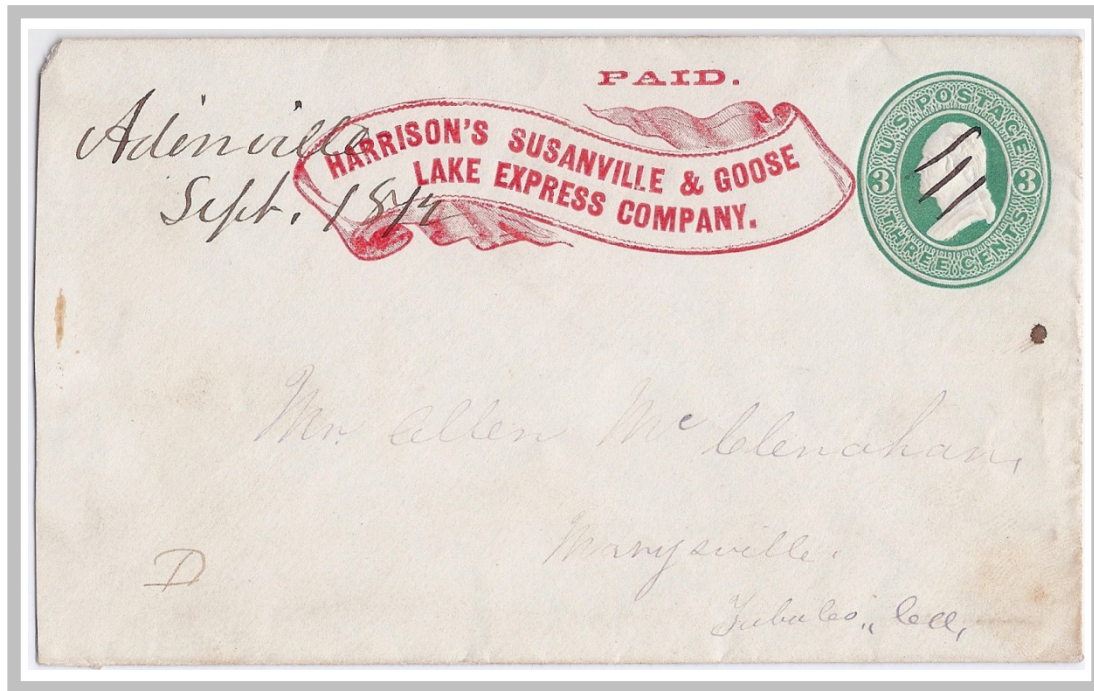 PAID.
Adinville
Sept. 18
HARRISON'S SUSANVILLE & GOOSE
LAKE EXPRESS COMPANY.
U.S. POSTAGE
3 3
THREE CENTS
Mr. Allen McClenahan,
Marysville.
Cal,
D